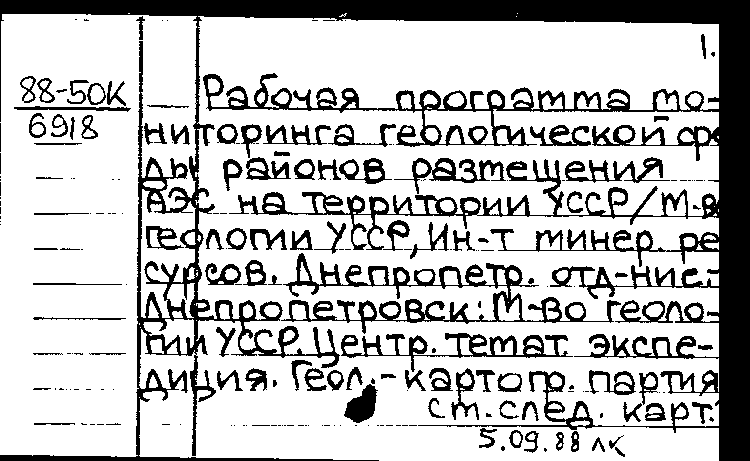 1.
88-50К
6918
Рабочая программа мо-
ниторинга геологической сре
ды районов размещения
АЭС на территории УССР/М-в
геологии УССР, Ин-т минер. ре
сурсов. Днепропетр. отд-ние.-
Днепропетровск: М-во геоло-
гии УССР. Центр. темат. экспе-
диция. Геол.-картогр. партия
см. след. карт.
5.09.88 лк